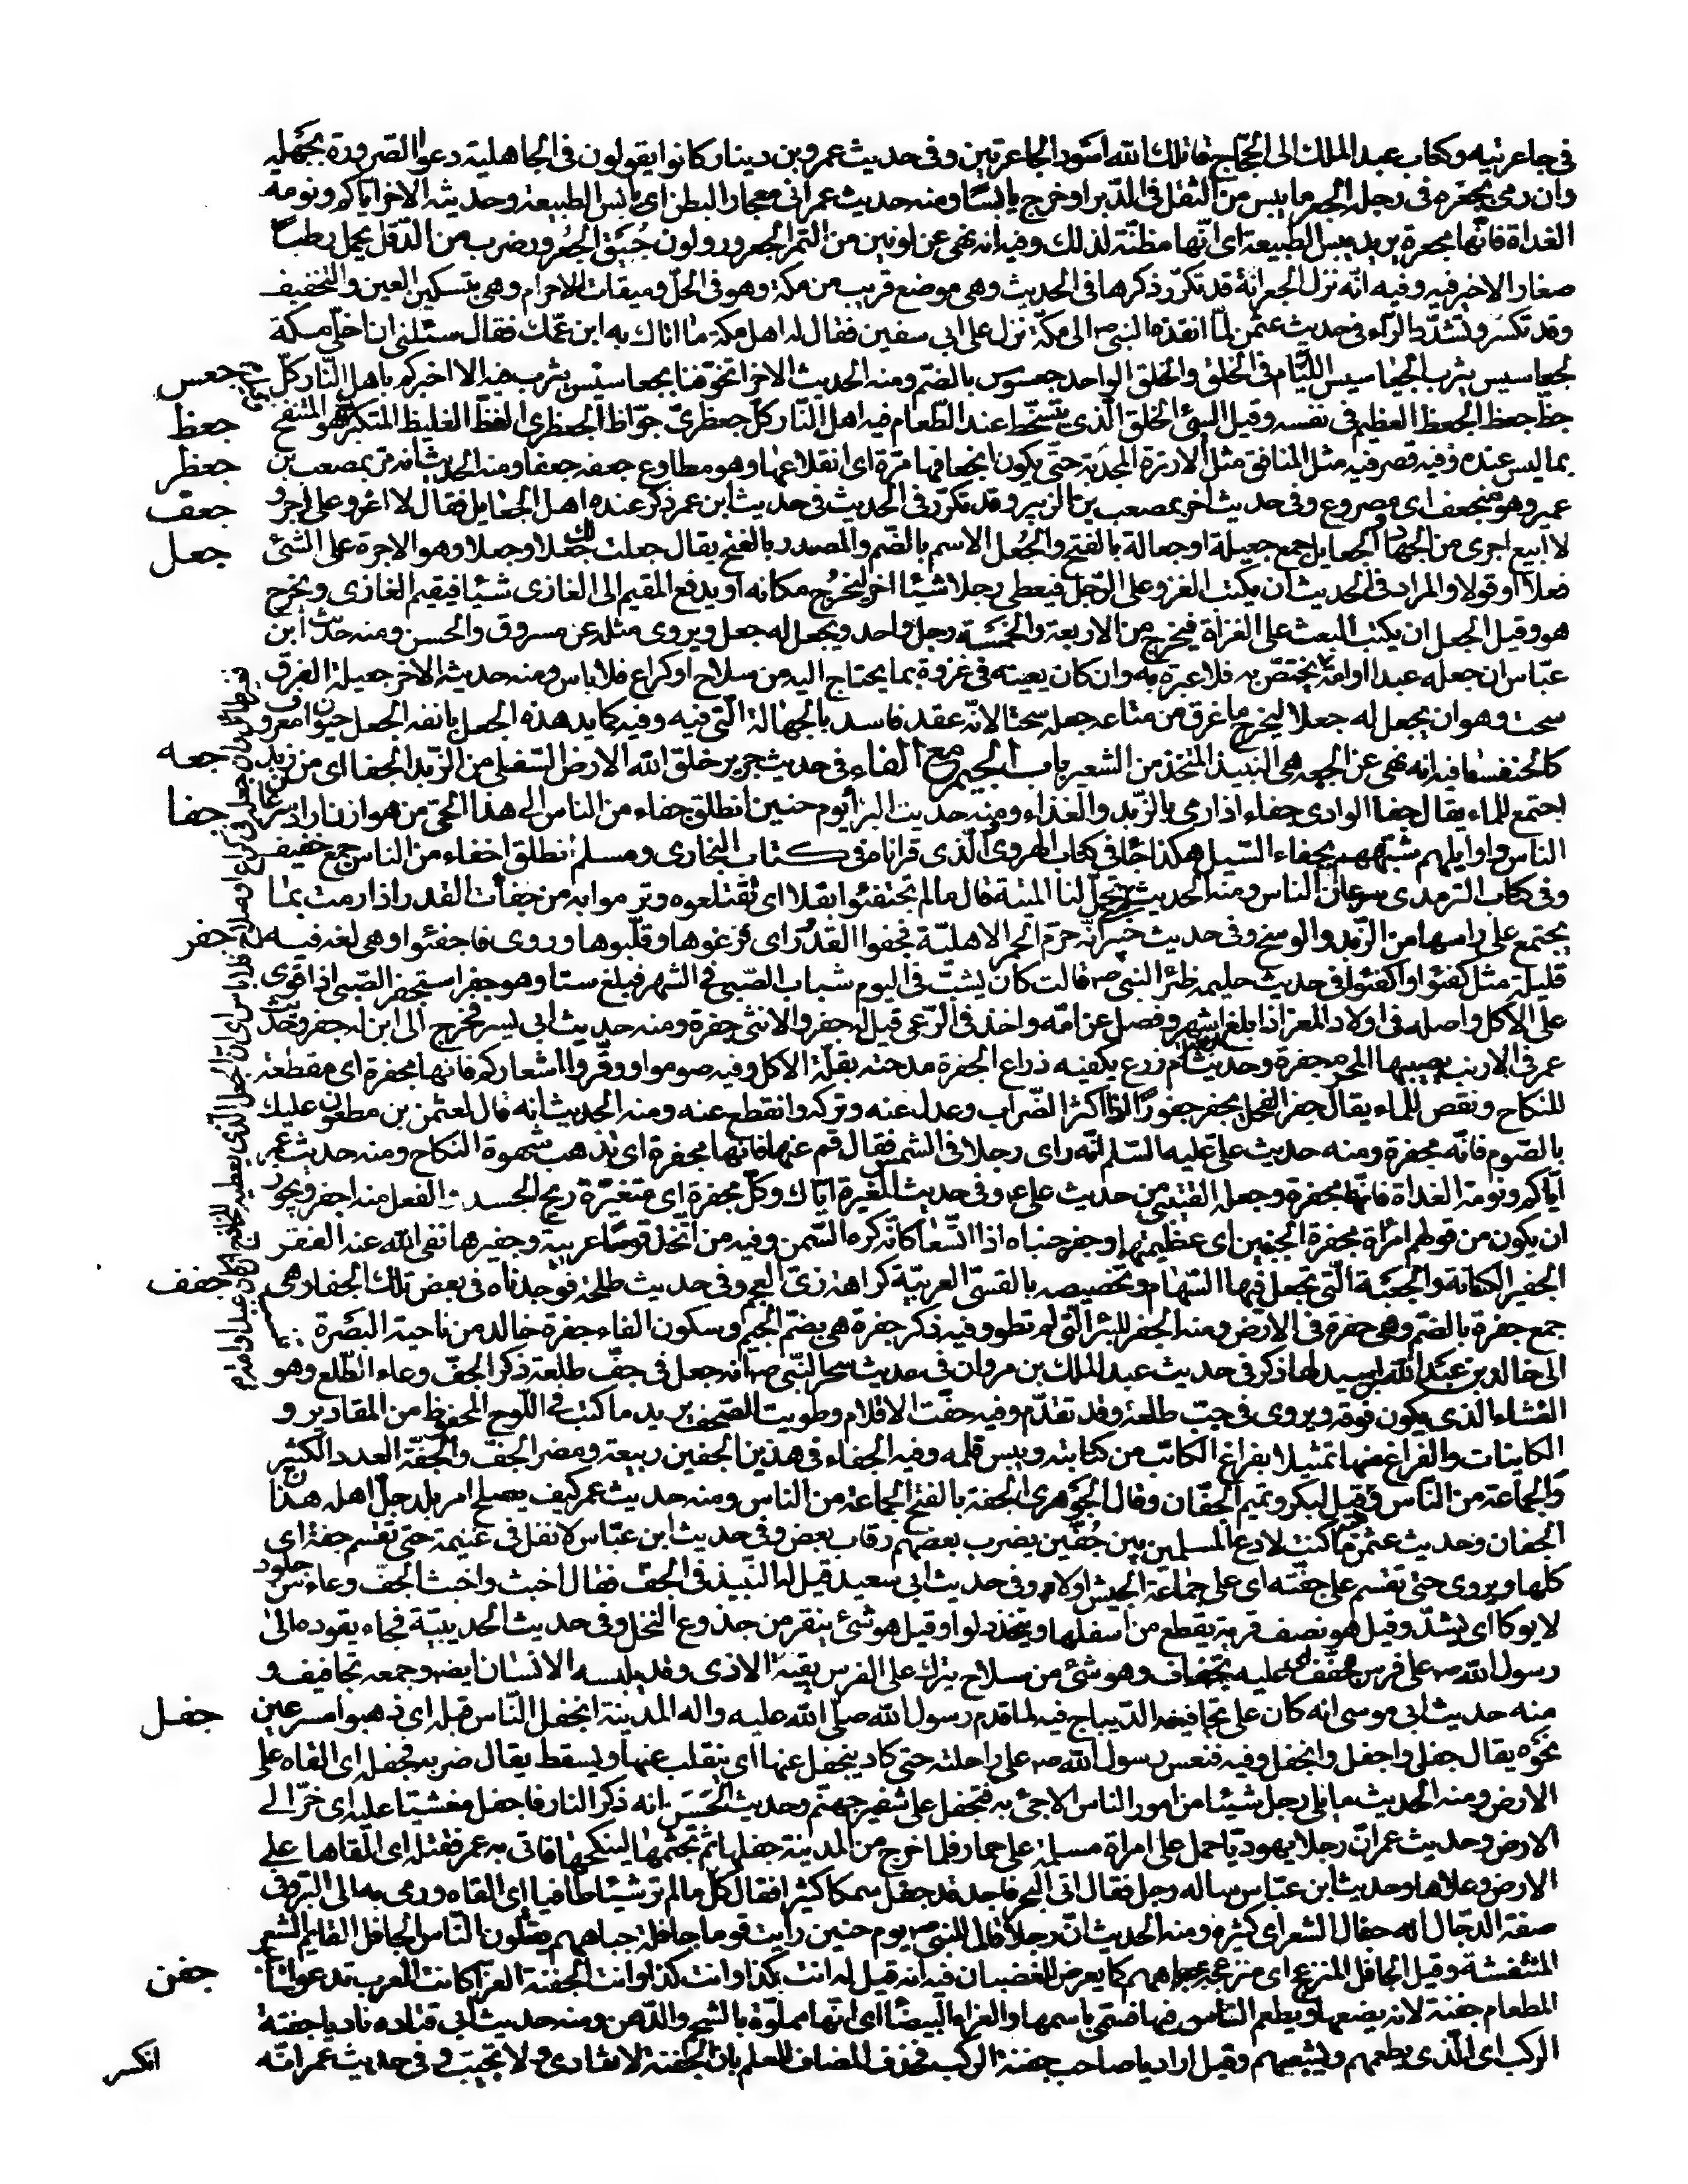 في جاعرتيه وكتاب عبد الملك الى الحجّاج قاتلك الله اسود الجاعرتين وفي حديث عمرو بن دينار كانوا يقولون في الجاهلية دعوا الصّرورة بجهله
وان رمى بجعره في رحله الجعر ما يبس من الثفل في الدّبر او خرج يابسًا ومنه حديث عمر اني مجعار البطن اى يابس الطبيعة وحديثه الاخر اياكم ونومة
الغداة فانها مجعرة يريد يبس الطبيعة اى انّها مظنّة لذلك وفيه انه نهى عن لونين من التمر الجعرور ولون حُبَيق الجعرور ضرب من الدّقل يحمل رطبًا
صغارا لا خير فيه وفيه انّه نزل الجعرانة قد تكرّر ذكرها في الحديث وهى موضع قريب من مكة وهو في الحلّ وميقات للاحرام وهى بتسكين العين والتخفيف
وقد تكسر وتشدّد الرّاء في حديث عثمن لمّا انفذه النبى ص الى مكّة نزل على ابى سفين فقال له اهل مكة ما اتاك به ابن عمّك فقال سئلنى ان اخلّى مكة
لجعاسيس يثرب الجعاسيس اللئام في الخلق والخلق الواحد جعسوس بالضمّ ومنه الحديث الاخر اتخوّفنا بجعاسيس يثرب فيه الا اخبركم باهل النّار كلّ
جعس
جظّ جعظ الجعظ العظيم في نفسه وقيل السيئ الخلق الّذى يتسخّط عند الطّعام فيه اهل النّار كلّ جعظرىّ جوّاظ الجعظرى الفظّ الغليظ المتكبّر وقيل هو المنتفخ
جعظ
بما ليس عنده وفيه قصر فيه مثل المنافق مثل الارزة المجذية حتّى يكون انجعافها مرّة اى انقلاعها وهو مطاوع جعفه جعفا ومنه الحديث انه مرّ بمصعب بن
جعظر
عمير وهو منجعف اى مصروع وفي حديث اخر بمصعب بن الزبير وقد تكرّر في الحديث في حديث ابن عمر ذكر عنده اهل الجعايل فقال لا اغزو على اجر و
جعف
لا ابيع اجرى من الجهاد الجعايل جمع جعيلة او جعالة بالفتح والجُعل الاسم بالضّم والمصدر بالفتح يقال جعلت لك جعلا وجعلا وهو الاجرة على الشئ
جعل
فعلا او قولا والمراد في الحديث ان يكتب الغزو على الرّجل فيعطى رجلا شيئا اخر ليخرج مكانه او يدفع المقيم الى الغازى شيئا فيقيم الغازى ويخرج
هو وقيل الجعل ان يكتب البعث على الغزاة فيخرج من الاربعة والخمسة رجل واحد ويجعل له جعل ويروى مثله عن مسروق والحسن ومنه حديث ابن
عبّاس ان جعله عبدا او امة يختصّ به فلا عبرة به وان كان يعينه في غزوة بما يحتاج اليه من سلاح او كراع فلا باس ومنه حديثه الاخر جعيلة الغرق
سحت وهو ان يجعل له جعلا ليخرج ما غرق من متاعه جعله سحتا لانّه عقد فاسد بالجهالة التى فيه وفيه كما يدهده الجعل بانفه الجعل حيوان معروف
كالخنفساء فيه انه نهى عن الجعه هى النبيذ المتّخذ من الشعير باب الجيم مع الفاء في حديث جرير خلق الله الارض السّفلى من الزّبد الجفا اى من زبد
جعه
اجتمع للماء يقال جفا الوادى جفاء اذا رمى بالزّبد والغذاء ومنه حديث البرأ يوم حنين انطلق جفاء من الناس الى هذا الحىّ من هوازن اراد سرعان
جفا
الناس واوايلهم شبّههم بجفاء السّيل هكذا جاء في كتاب الهروى والّذى قراناه في كتاب البخارى ومسلم انطلق اخفاء من الناس جمع خفيف
وفي كتاب الترمدى سرعان الناس ومنه الحديث متى تحلّ لنا الميتة قال ما لم تجتفئوا بقلا اى تقتلعوه وترموا به من جفأت القدر اذا رمت بما
يجتمع على راسها من الزّبد والوسخ وفي حديث خيبر انّه حرّم الحمر الاهليّة فجفوا القدور اى فرّغوها وقلّبوها وروى فاجفئوا وهى لغه فيه
جفر
قليلة مثل كفئوا واكفئوا في حديث حليمه ظئر النبى ص قالت كان يشبّ في اليوم شباب الصّبى في الشهر فبلغ ستا وهو جفر استجفر الصّبى اذا قوى
على الاكل واصله في اولاد المعز اذا بلغ اربعة اشهر وفصل عن امّه واخذ في الرّعى قيل له جفر والانثى جفرة ومنه حديث ابى يسر فخرج الى ابن له جفر وحديث
عمر في الارنب يصيبها المحرم جفرة وحديث ام زرع يكفيه ذراع الجفرة مدحته بقلّة الاكل وفيه صوموا ووفّروا اشعاركم فانها مجفرة اى مقطعة
للنكاح ونقص للماء يقال جفر الفحل يجفر جفورًا اذا اكثر الضّراب وعدل عنه وتركه وانقطع عنه ومنه الحديث انه قال لعثمن بن مظعون عليك
بالصّوم فانّه مجفرة ومنه حديث علىّ عليه السّلم انّه راى رجلا في الشمس فقال قم عنها فانّها مجفرة اى تذهب شهوة النكاح ومنه حديث عمر
ايّاكم ونومة الغداة فانّها مجفرة وجعله القتيبى من حديث على ع وفي حديث المغيرة ايّاك وكلّ مجفرة اى متغيّرة ريح الجسد والفعل منه اجفر ويجوز
ان يكون من قولهم امرأة مجفرة الجنبين اى عظيمتهما وجفر جنباه اذا اتّسعا كانّه كره السّمن وفيه من اتّخذ قوسًا عربيّة وجفيرها نفى الله عنه الفقر
الجفير الكنانة والجعبة التّى تجعل فيها السّهام وتخصيصه بالقسىّ العربيّة كراهة زىّ العجم وفي حديث طلحة فوجدناه في بعض تلك الجفار وهى
جفف
جمع جفرة بالضّم وهى حفرة في الارض ومنه الجفر للبئر التّى لم تطو وفيه ذكر جفرة هى بضمّ الجيم وسكون الفاء جفرة خالد من ناحية البصرة
الى خالد بن عبد الله بن اسيد لها ذكر في حديث عبد الملك بن مروان في حديث سحر النّبى ص انه جعل في جفّ طلعة ذكر الجفّ وعاء الطّلع وهو
الغشاء الّذى يكون فوقه ويروى في جبّ طلعة وقد تقدّم وفيه جفّت الاقلام وطويت الصّحف يريد ما كتب في اللّوح المحفوظ من المقادير و
الكاينات والفراغ منها تمثيلا بفراغ الكاتب من كتابته ويبس قلمه وفيه الجفاء في هذين الجفين ربيعة ومضر الجفّ والجفّة العدد الكثير
والجماعة من النّاس وقيل لبكر وتميم الجفّان وقال الجوهرى الجفة بالفتح الجماعة من الناس ومنه حديث عمر كيف يصلح امر بلد جلّ اهله هذان
الجفان وحديث عثمن ما كنت لادع المسلمين بين جُفّين يضرب بعضهم رقاب بعض وفي حديث ابن عبّاس لا نفل في غنيمة حتى تقسم جفة اى
كلها ويروى حتى تقسم على جفّته اى على جماعة الجيش اولا وفي حديث ابى سعيد قيل له النّبيذ في الجفّ فقال اخبث واخبث الجفّ وعاء من جلود
لا يوكا اى لا يشدّ وقيل هو نصف قربة يقطع من اسفلها ويتخذ دلوا وقيل هو شئ ينقر من جذوع النخل وفي حديث الحديبيّة فجاء يقوده الى
رسول الله ص على فرس مجفّف اى عليه تجفاف وهو شئ من سلاح يترك على الفرس يقيه الاذى وقد يلبسه الانسان ايضا وجمعه تجافيف و
منه حديث ابى موسى انه كان على تجافيفه الديباج فيه لما قدم رسول الله صلّى الله عليه واله المدينة انجفل النّاس قبله اى ذهبوا مسرعين
جفل
نحوه يقال جفل واجفل وانجفل وفيه فنعس رسول الله ص على راحلته حتى كاد ينجفل عنها اى ينقلب عنها ويسقط يقال ضربه فجفله اى القاه على
الارض ومنه الحديث ما يلى رجل شيئا من امور الناس الا جئ به فتجفل على شفير جهنّم وحديث الحسن انه ذكر النار فاجفل مغشيّا عليه اى خرّ الى
الارض وحديث عمر انّ رجلا يهوديّا حمل على امراة مسلمة على حمار فلما خرج من المدينة جفلها ثم تجثمها لينكحها فاتى به عمر فقتله اى القاها على
الارض وعلاها وحديث ابن عبّاس ساله رجل فقال اتى البحر فاجده قد جفل سمكا كثيرا فقال كل ما لم تر شيئا طافيا اى القاه ورمى به الى البرّ وفي
صفة الدجّال انه جفال الشعر اى كثيره ومنه الحديث انّ رجلا قال للنبى ص يوم حنين رأيت قوما جافلة جباههم يقتلون النّاس الجافل القايم الشعر
المنتفشة وقيل الجافل المنزعج اى منزعجة جباههم كما يعرض للغضبان فيه انه قيل له انت كذا وانت كذا وانت الجفنة الغرّا كانت العرب تدعو السيد
جفن
المطعام جفنة لانه يضعها ويطعم النّاس فيها فسمّى باسمها والغراء البيضاء اى انّها مملوّة بالشحم والدّهن ومنه حديث ابى قتاده ناد يا جفنة
الركب اى الّذى يطعمهم ويشبعهم وقيل اراد يا صاحب جفنة الركب فحذف المضاف للعلم بان الجفنة لا تنادى ولا تجيب وفي حديث عمر انّه
انكسر